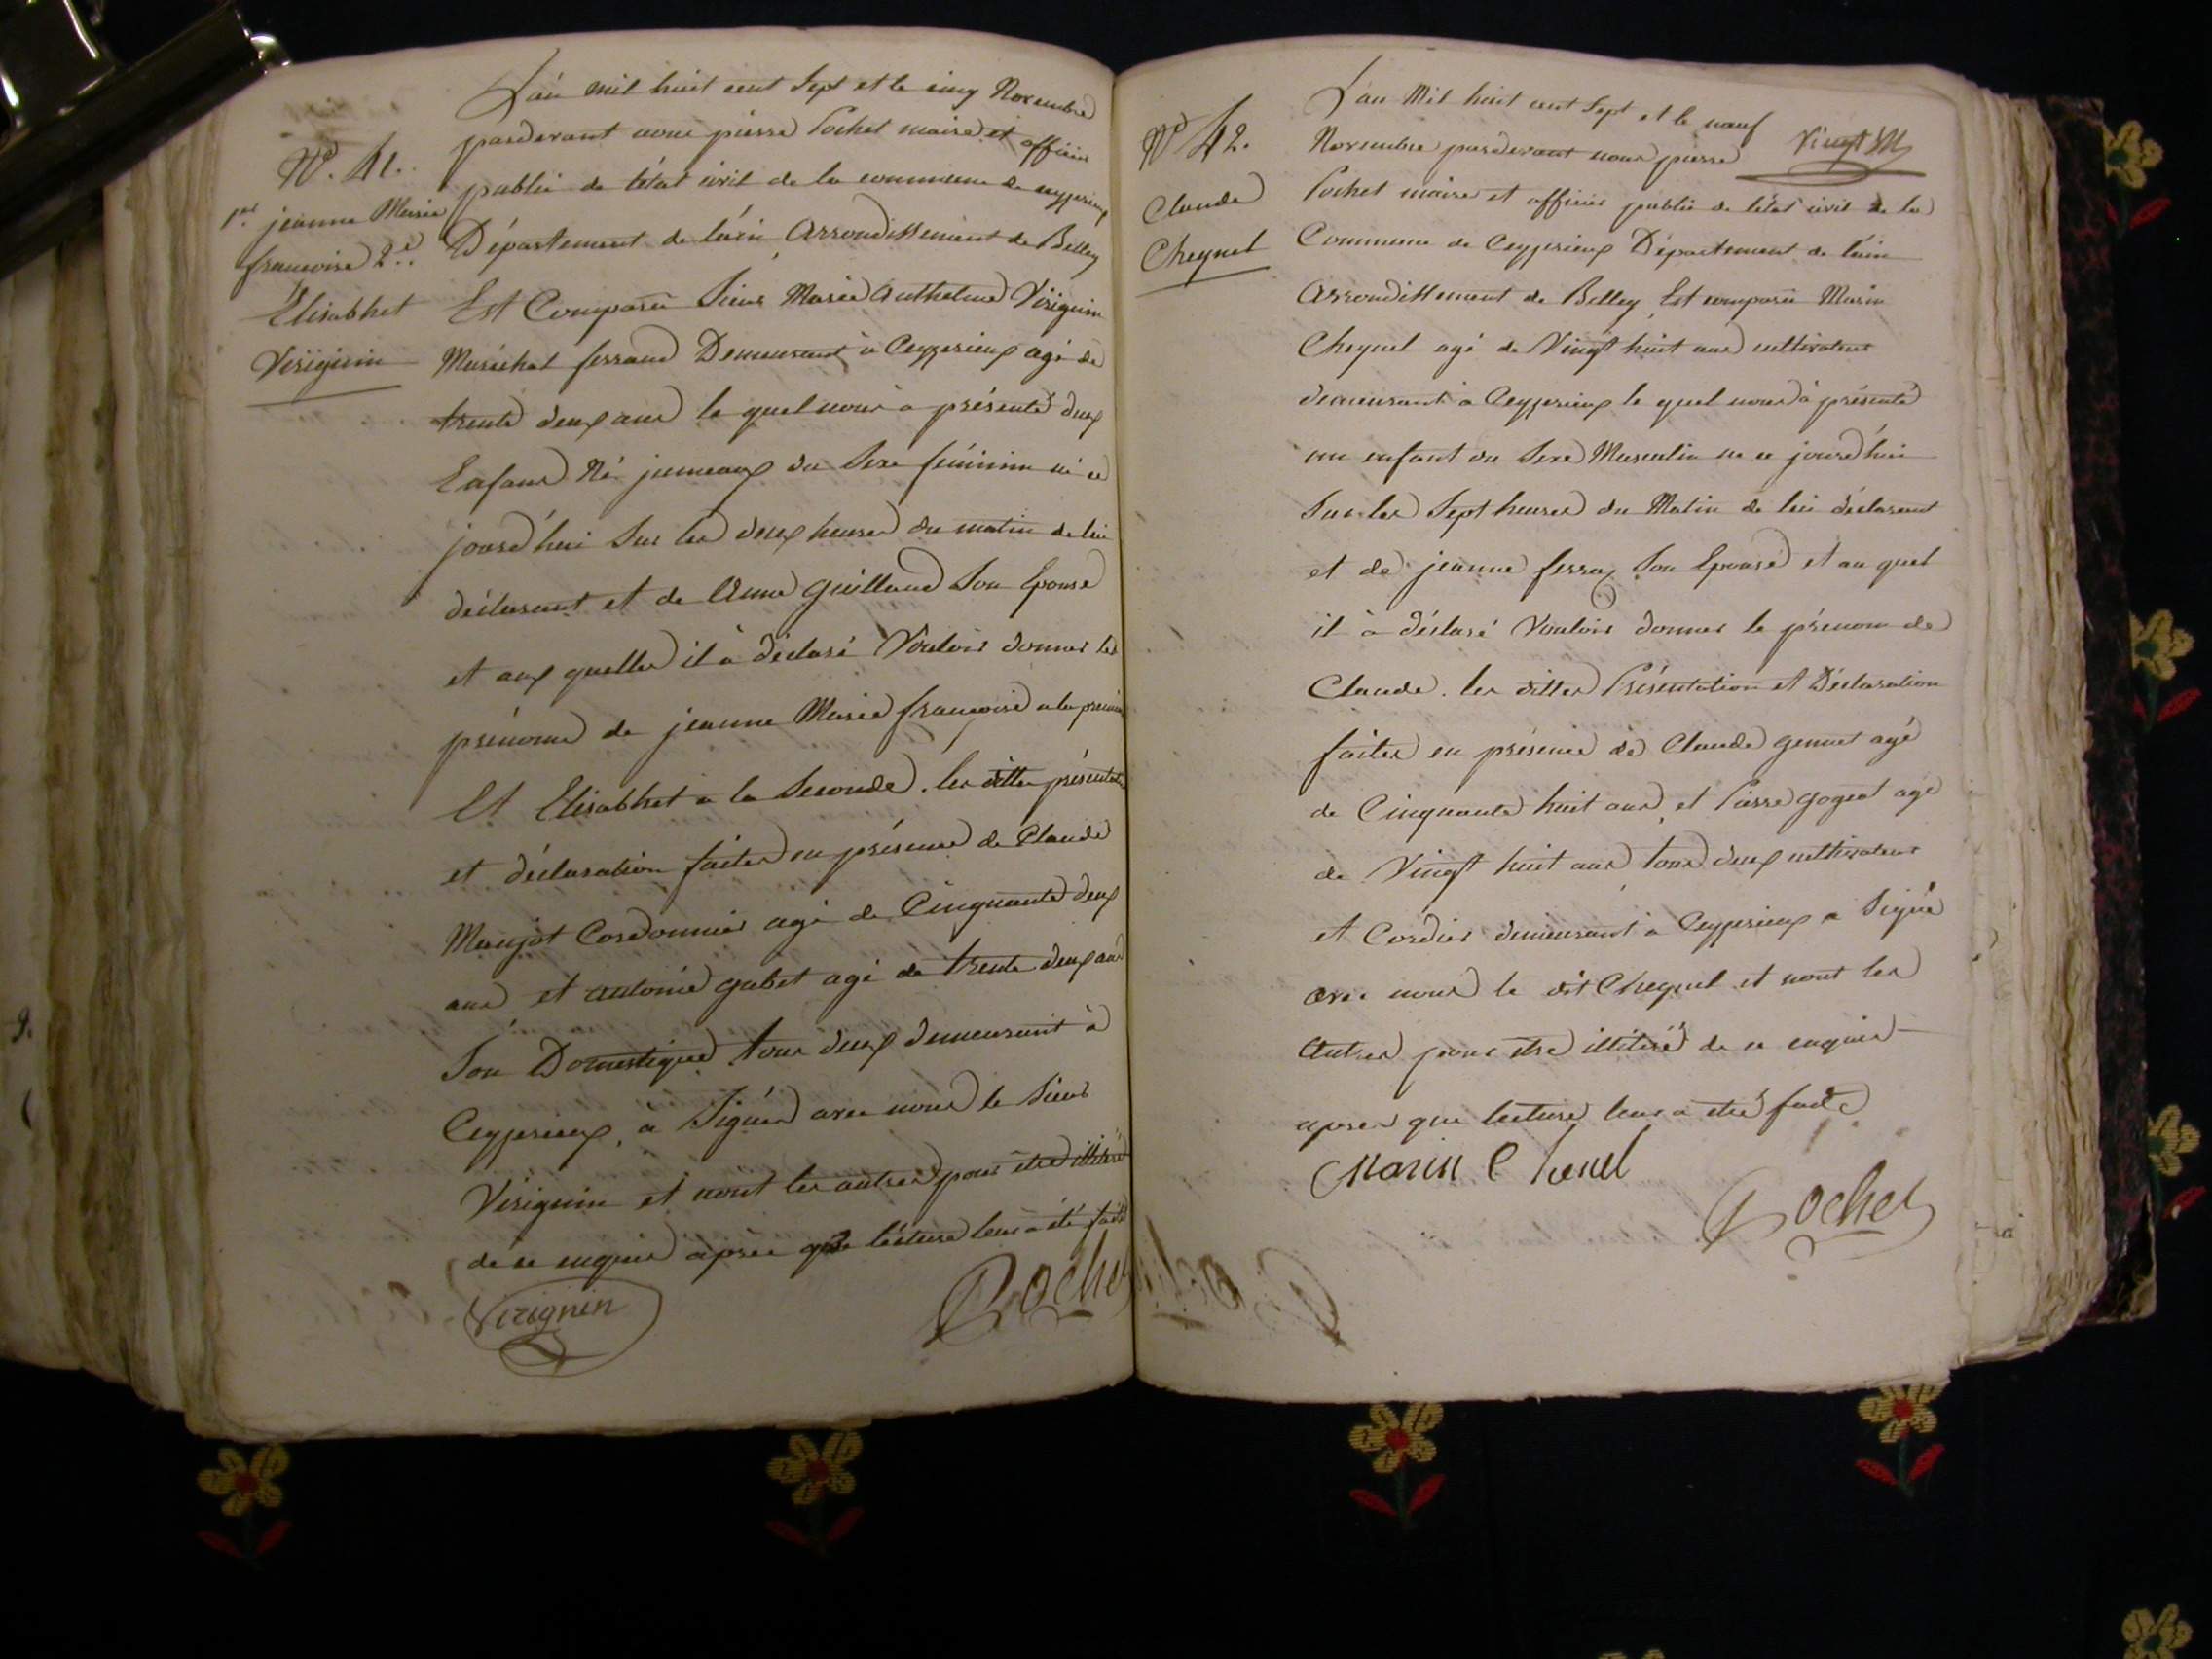 N.º 41.
1.re jeanne Marie
francoise 2.e
Élisabhet
Vérignin
L'an mil huit cent Sept et le cinq Novembre
pardevant nous pierre Pochet maire et officier
public de l'état civil de la commune de ceyzerieux
Département de l'ain Arrondissement de Belley
Est Comparu Sieur Marie Anthelme Vérignin
Maréchal ferrand Demeurant à Ceyzerieux agé de
trente deux ans le quel nous à présenté deux
Enfans Né jumeaux du Sexe féminin né ce
jourd'hui Sur les deux heures du matin de lui
déclarant et de Anne Guilland Son Epouse
et aux quelles il à déclaré Vouloir donner les
prénoms de jeanne Marie françoise a la premier
Et Elisabhet a la Seconde. les dittes présentation
et déclaration faites en présence de Claude
Manjot Cordonnier agé de Cinquante deux
ans et antoine gubet agé de trente deux ans
Son Domestique tous deux demeurant à
Ceyzerieux, a Signés avec nous le Sieur
Vérignin et nont les autres pour être illitéré
de ce enquis après que lecture leur à été faite
Verignin
Pochet
N.º 42.
Claude
Cheynel
Vingt
L'an Mil huit cent Sept et le neuf
Novembre pardevant nous pierre
Pochet maire et officier public de l'état civil de la
Commune de Ceyzerieux Département de l'ain
Arrondissement de Belley Est comparu Marin
Cheynel agé de Vingt huit ans cultivateur
demeurant à Ceyzerieux le quel nous à présenté
un enfant du Sexe Masculin né ce jourd'hui
Sur les Sept heures du Matin de lui déclarant
et de jeanne ferraz Son Epouse et au quel
il à déclaré Vouloir donner le prénom de
Claude. les dittes Présentation et Déclaration
faites en présence de Claude genut agé
de Cinquante huit ans, et Pierre gognot agé
de Vingt huit ans tous deux cultivateur
et Cordier demeurant à Ceyzerieux a Signé
avec nous le dit Cheynel et nont les
Autres pour être illitéré de ce enquis
apres que lecture leur a été faite
Marin Chenel
Pochet